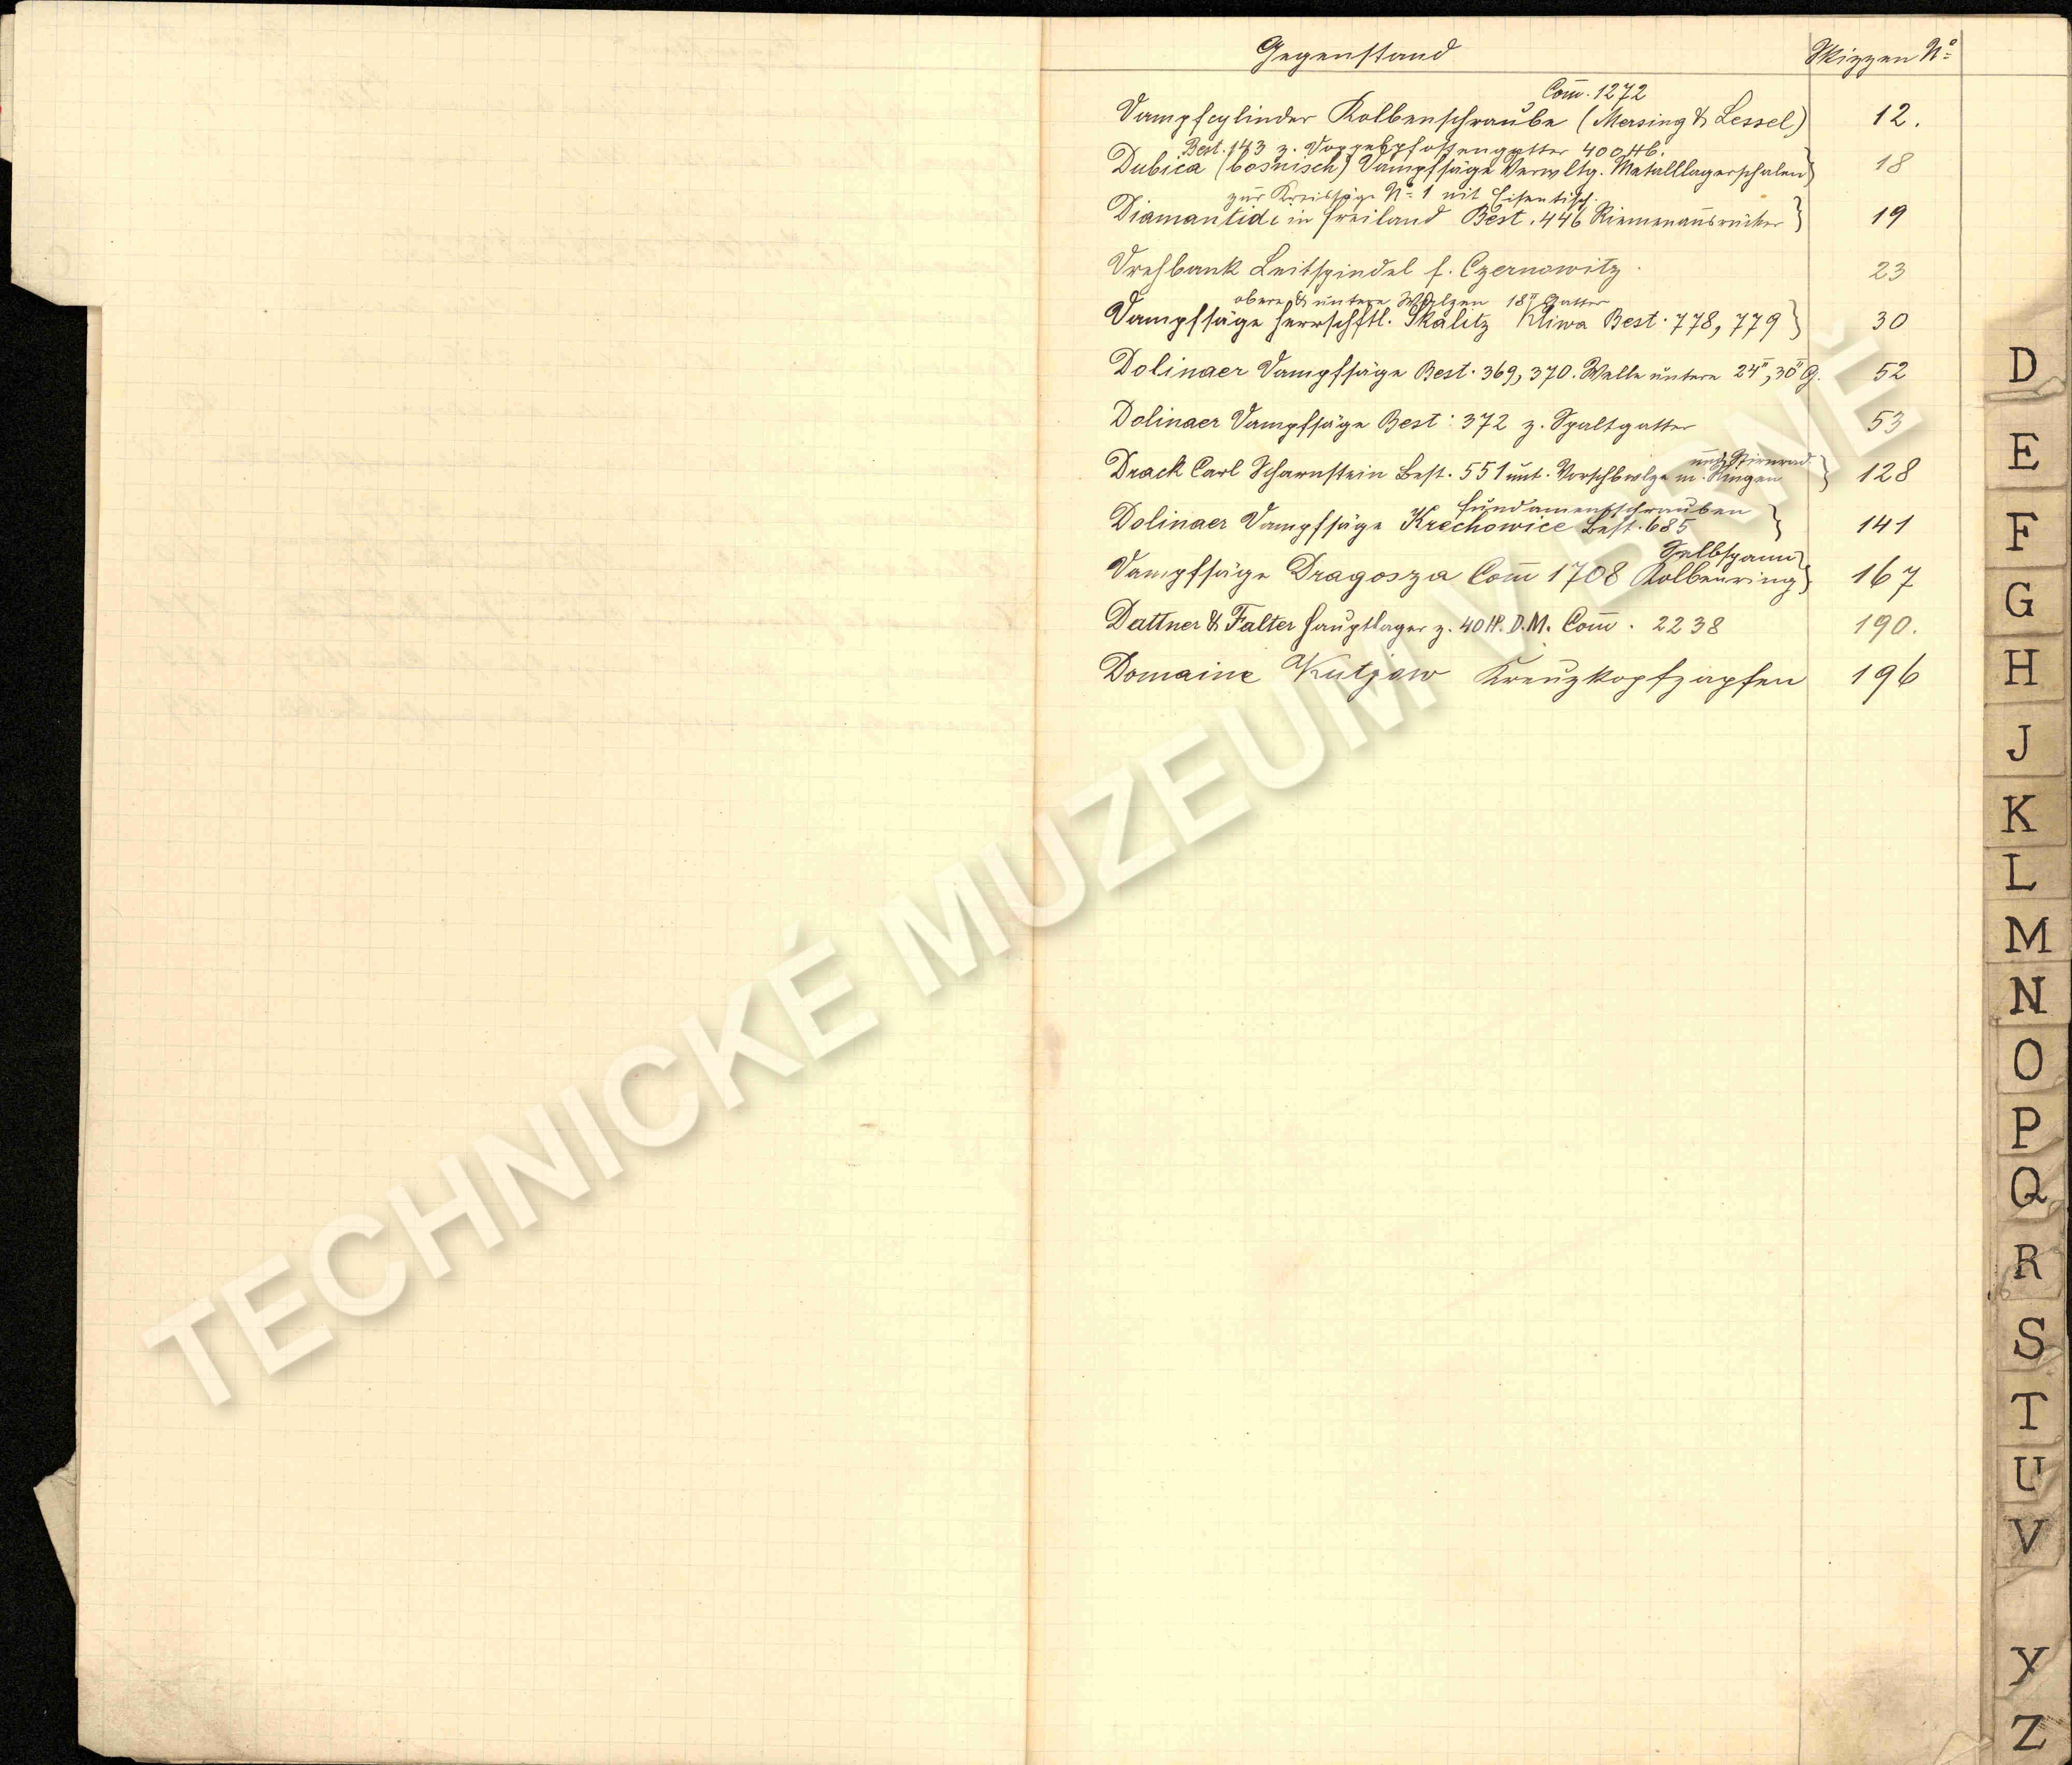 Gegenstand Skizzen No
Com̄. 1272
Dampfcylinder Kolbenschraube (Mersing & Lessel) 12.
Best. 143 z. Doppelpfostengatter 400
Dubica (bosnisch) Dampfsäge Verwltg. Metalllagerschalen} 18
zur Kreissäge No 1 mit Eisentisch
Diamantidi in Freiland Best. 446 Riemenausrücker} 19
Drehbank Leitspindel f. Czernowitz. 23
obere & untere Walzen 18" Gatter
Dampfsäge Herrschftl. Skalitz Kliwa Best. 778, 779} 30
Dolinaer Dampfsäge Best. 369, 370. Welle untere 24", 30" G. 52
Dolinaer Dampfsäge Best: 372 z. Spaltgatter 53
und Stirnrad.
Drack Carl Scharnstein Best. 551 unt. Vorschbwlze m. Ringen} 128
Fundamentschrauben
Dolinaer Dampfsäge Krechowice Best. 685} 141
Selbspann
Dampfsäge Dragosza Com̄ 1708 Kolbenring} 167
Dattner & Falter Hauptlager z. 40 H. D.M. Com̄. 2238 190.
Domaine Kutjow Kreuzkopfzapfen 196
D
E
F
G
H
J
K
L
M
N
O
P
Q
R
S
T
U
V
Y
Z
TECHNICKÉ MUZEUM V BRNĚ